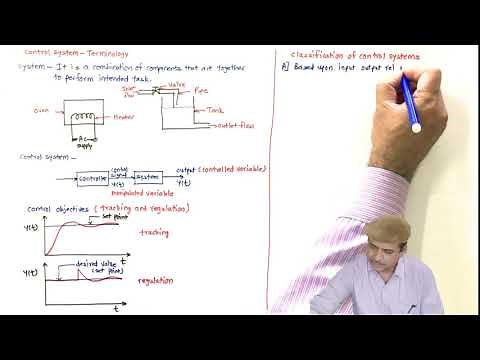 Control System - Terminology
System - It is a combination of components that act together
to perform intended task.
Oven
Heater
AC
supply
Inlet
flow
Valve
Pipe
Tank
outlet flow
Control System -
Controller
control
signal
u(t)
System
output (controlled variable)
y(t)
manipulated variable
Control objectives (tracking and regulation)
y(t)
set point
tracking
t
y(t)
desired value
(set point)
regulation
t
Classification of control systems
A] Based upon input output rel